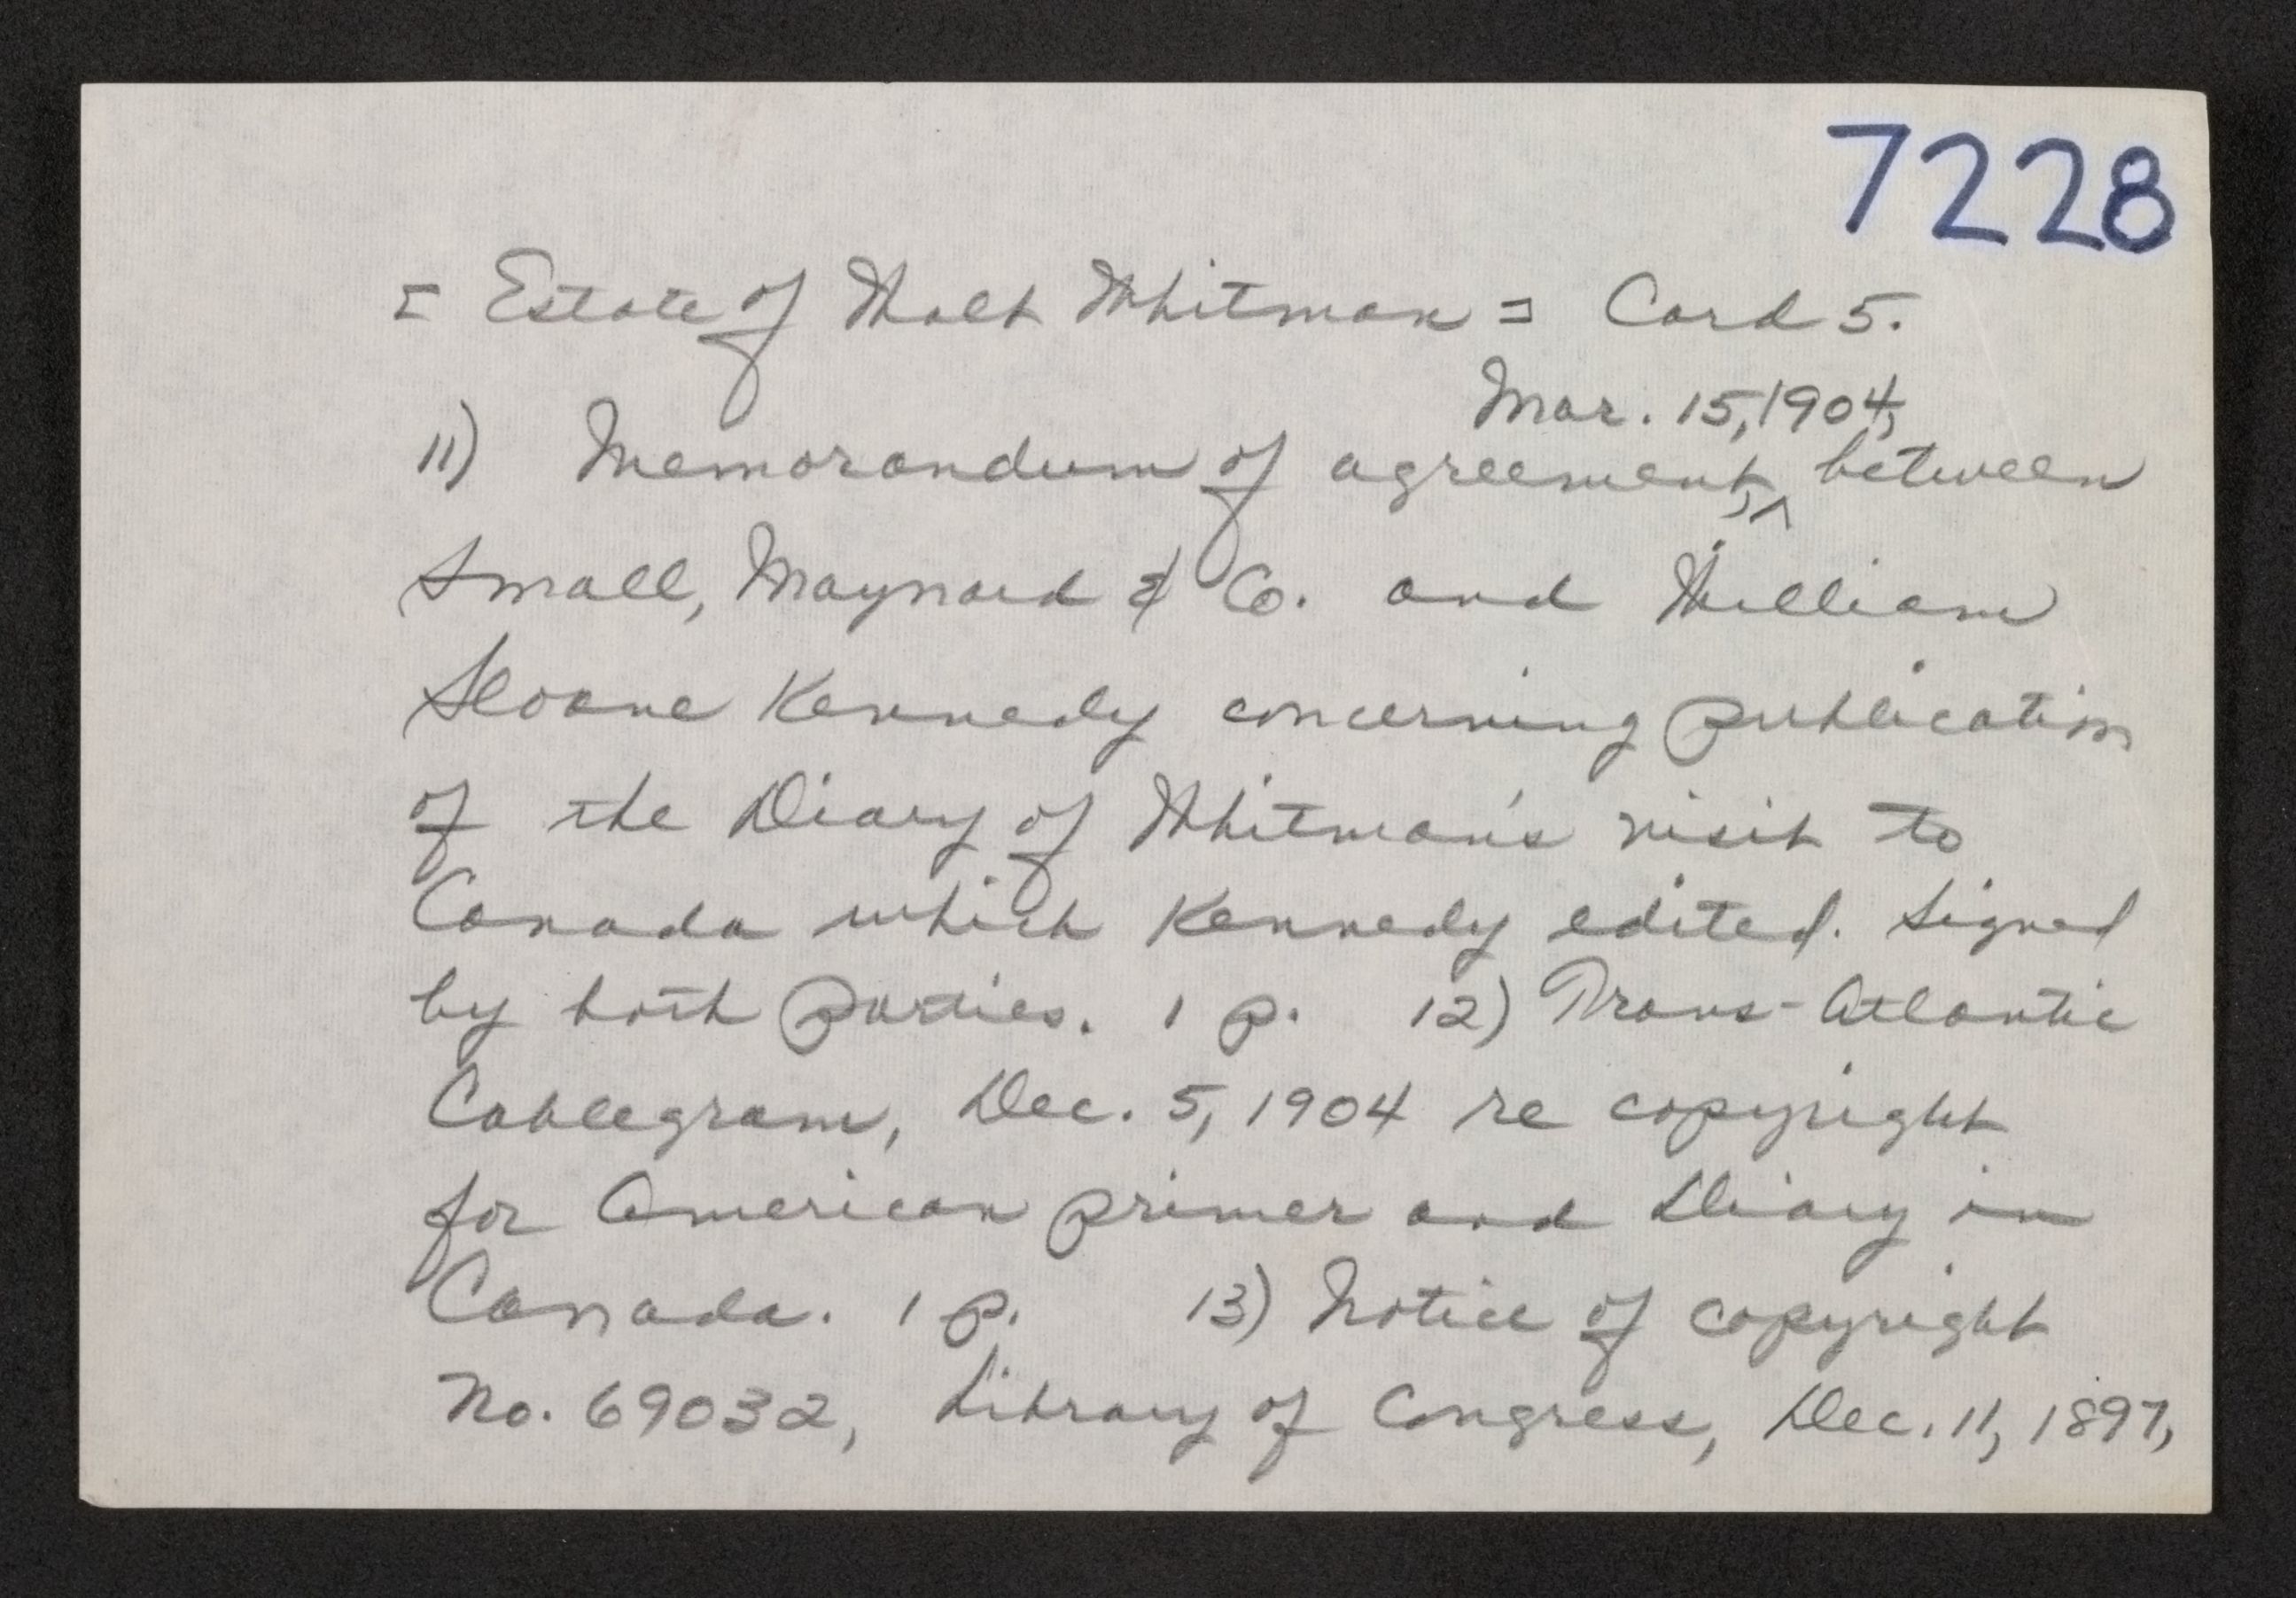 7228
= Estate of Walt Whitman = Card 5.
Mar. 15, 1904,
11) Memorandum of agreement, ^ between
Small, Maynard & Co. and William
Sloane Kennedy concerning publication
of the Diary of Whitman's visit to
Canada which Kennedy edited. Signed
by both parties. 1 p. 12) Trans-Atlantic
Cablegram, Dec. 5, 1904 re copyright
for American primer and Diary in
Canada. 1 p. 13) Notice of copyright
No. 69032, Library of Congress, Dec. 11, 1897,